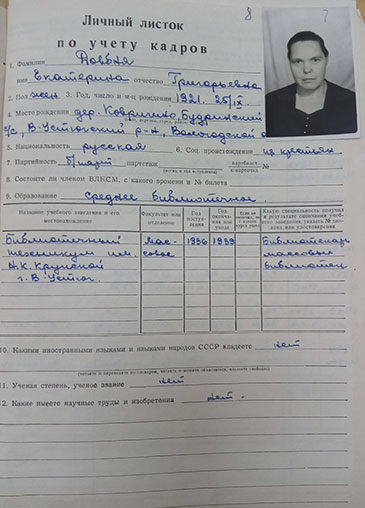 8
7
Личный листок
по учету кадров
1. Фамилия
имя Екатерина отчество Григорьевна
2. Пол жен 3. Год, число и м-ц рождения 1921. 25/IX.
4. Место рождения дер. Ковригино, Будринский
с/с, В-Устюгский р-н, Вологодской
5. Национальность русская 6. Соц. происхождение из крестьян
7. Партийность б/парт партстаж №
8. Состоите ли членом ВЛКСМ, с какого времени и № билета
9. Образование Среднее библиотечное
Название учебного заведения и его местонахождение
Факультет или отделение
Год поступления
Год окончания или ухода
Какую специальность получил в результате окончания учебного заведения, указать № диплома или удостоверения
Библиотечный Мас- 1936 1939 Библиотекарь
техникум им. совое массовых
Н.К. Крупской библиотек
г. В-Устюг.
10. Какими иностранными языками и языками народов СССР владеете нет
(читаете и переводите со словарем, читаете и можете объясняться, владеете свободно)
11. Ученая степень, ученое звание нет
12. Какие имеете научные труды и изобретения нет.